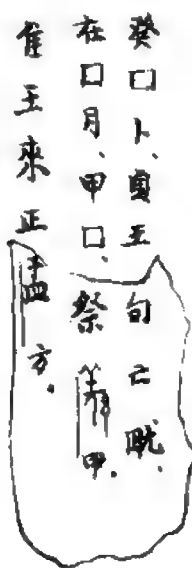 癸□卜、貞王旬亡畎、
在□月、甲□、祭羌甲.
隹王來正盂方.